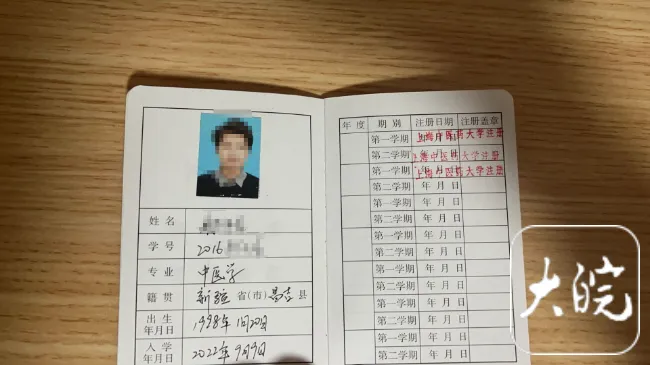 姓名
学号 2016
专业 中医学
籍贯 新疆省(市)昌吉县
出生年月日 1998年1月20日
入学年月日 2022年9月9日
年度 期别 注册日期 注册盖章
第一学期 年月日 上海中医药大学注册
第二学期 年月日 上海中医药大学注册
第一学期 年月日 上海中医药大学注册
第二学期 年月日
第一学期 年月日
第二学期 年月日
第一学期 年月日
第二学期 年月日
第一学期 年月日
第二学期 年月日
第一学期 年月日
第二学期 年月日
大皖